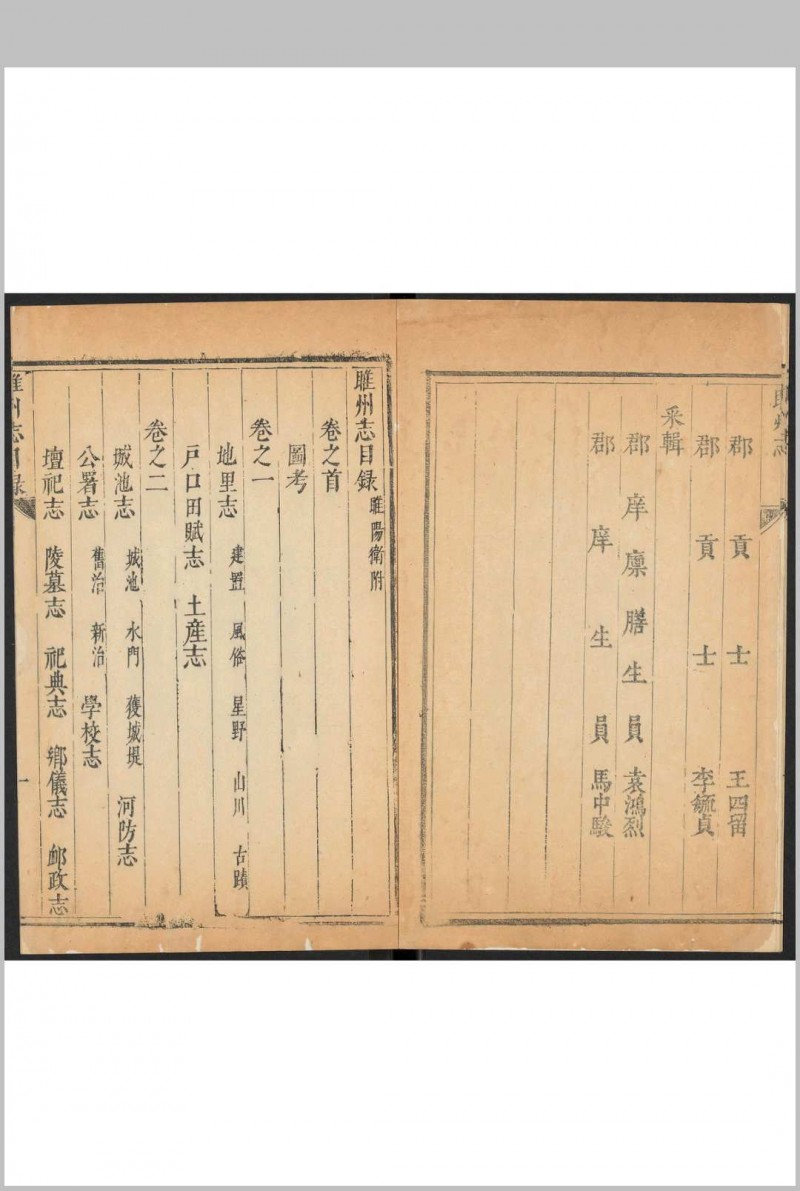 郡貢士王四留
郡貢士李毓貞
采輯
郡庠廩膳生員袁鴻烈
郡庠生員馬中駿
睢州志目録 睢陽衛附
卷之首
圖考
卷之一
地里志 建置 風俗 星野 山川 古蹟
戶口田賦志 土産志
卷之二
城池志 城池 水門 護城堤 河防志
公署志 舊治 新治 學校志
壇祀志 陵墓志 祀典志 鄉儀志 郵政志
睢州志目録
一